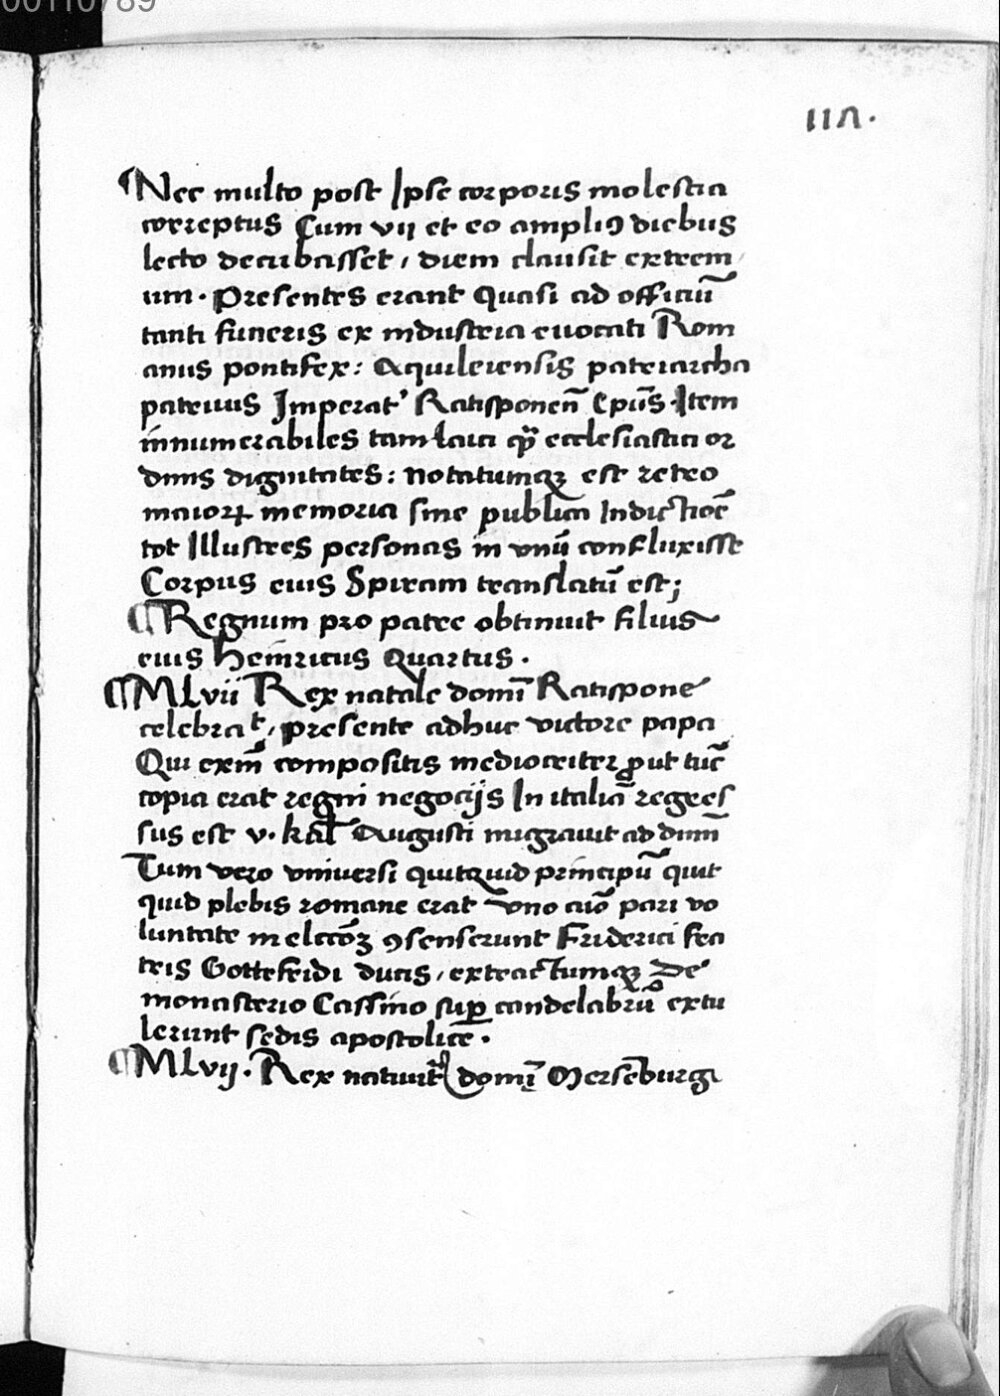 00110789
117.
¶Nec multo post Ipse corporis molestia
correptus Cum vij et eo ampliꝯ diebus
lecto decubasset, diem clausit extrem
um. Presentes erant quasi ad officiū
tanti funeris ex industria euocati Rom
anus pontifex: Aquileiensis patriarcha
patruus Imperat' Ratisponen̄ Ep̄us. Item
innumerabiles tam laici qꝫ ecclesiastici or
dinis dignitates: Notatumqꝫ est retro
maioꝝ memoria sine publica Indictiōe
tot Illustres personas in vnū confluxisse
Corpus eius Spiram translatū est;
¶Regnum pro patre obtinuit filius
eius Heinricus Quartus.
¶MLvii Rex natale domī Ratispone
celebrat, presente adhuc victore papa
Qui exin̄ compositis mediocriter ꝓut tūc
copia erat regni negocijs In italiā regres
sus est v. kal̄ Augusti migrauit ad dnm̄
Tum vero vniuersi quicquid principū quit
quid plebis romane erat vno aīo pari vo
luntate in elccōꝫ ꝯsenserunt Friderici fra
tris Gottefridi ducis, extractumqꝫ De
monasterio Cassino suꝑ candelabrū extu
lerunt sedis apostolice.
¶MLvij. Rex natiuit̄ domī Mersēburgi